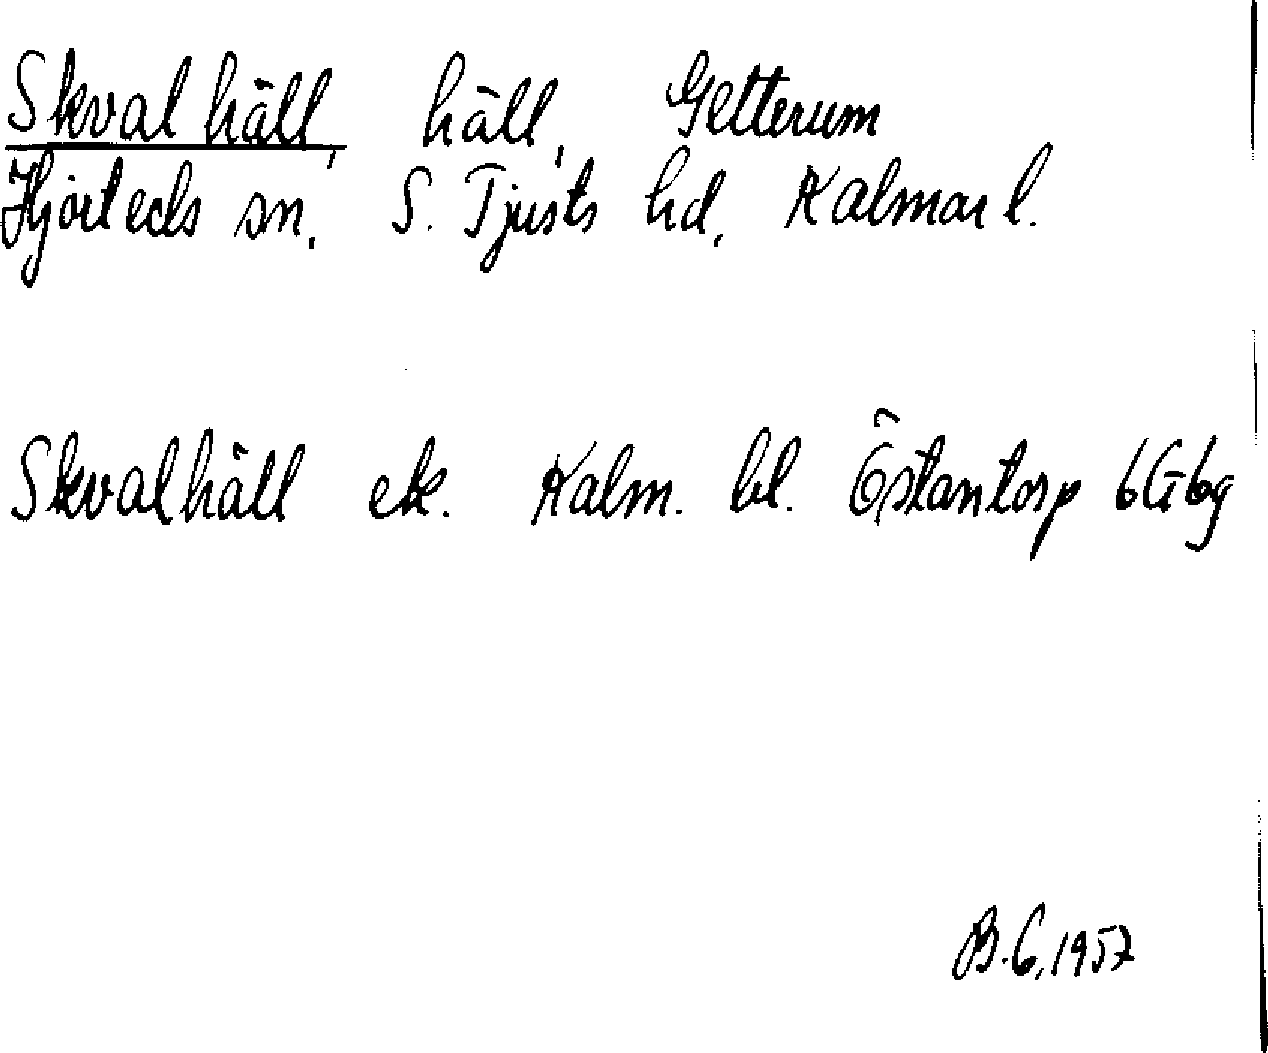 Skvalhäll, häll, Getterum
Hjorteds sn. S. Tjusts hd. Kalmar l.
Skvalhäll ek. Kalm. bl. Östantorp
B.C. 1957